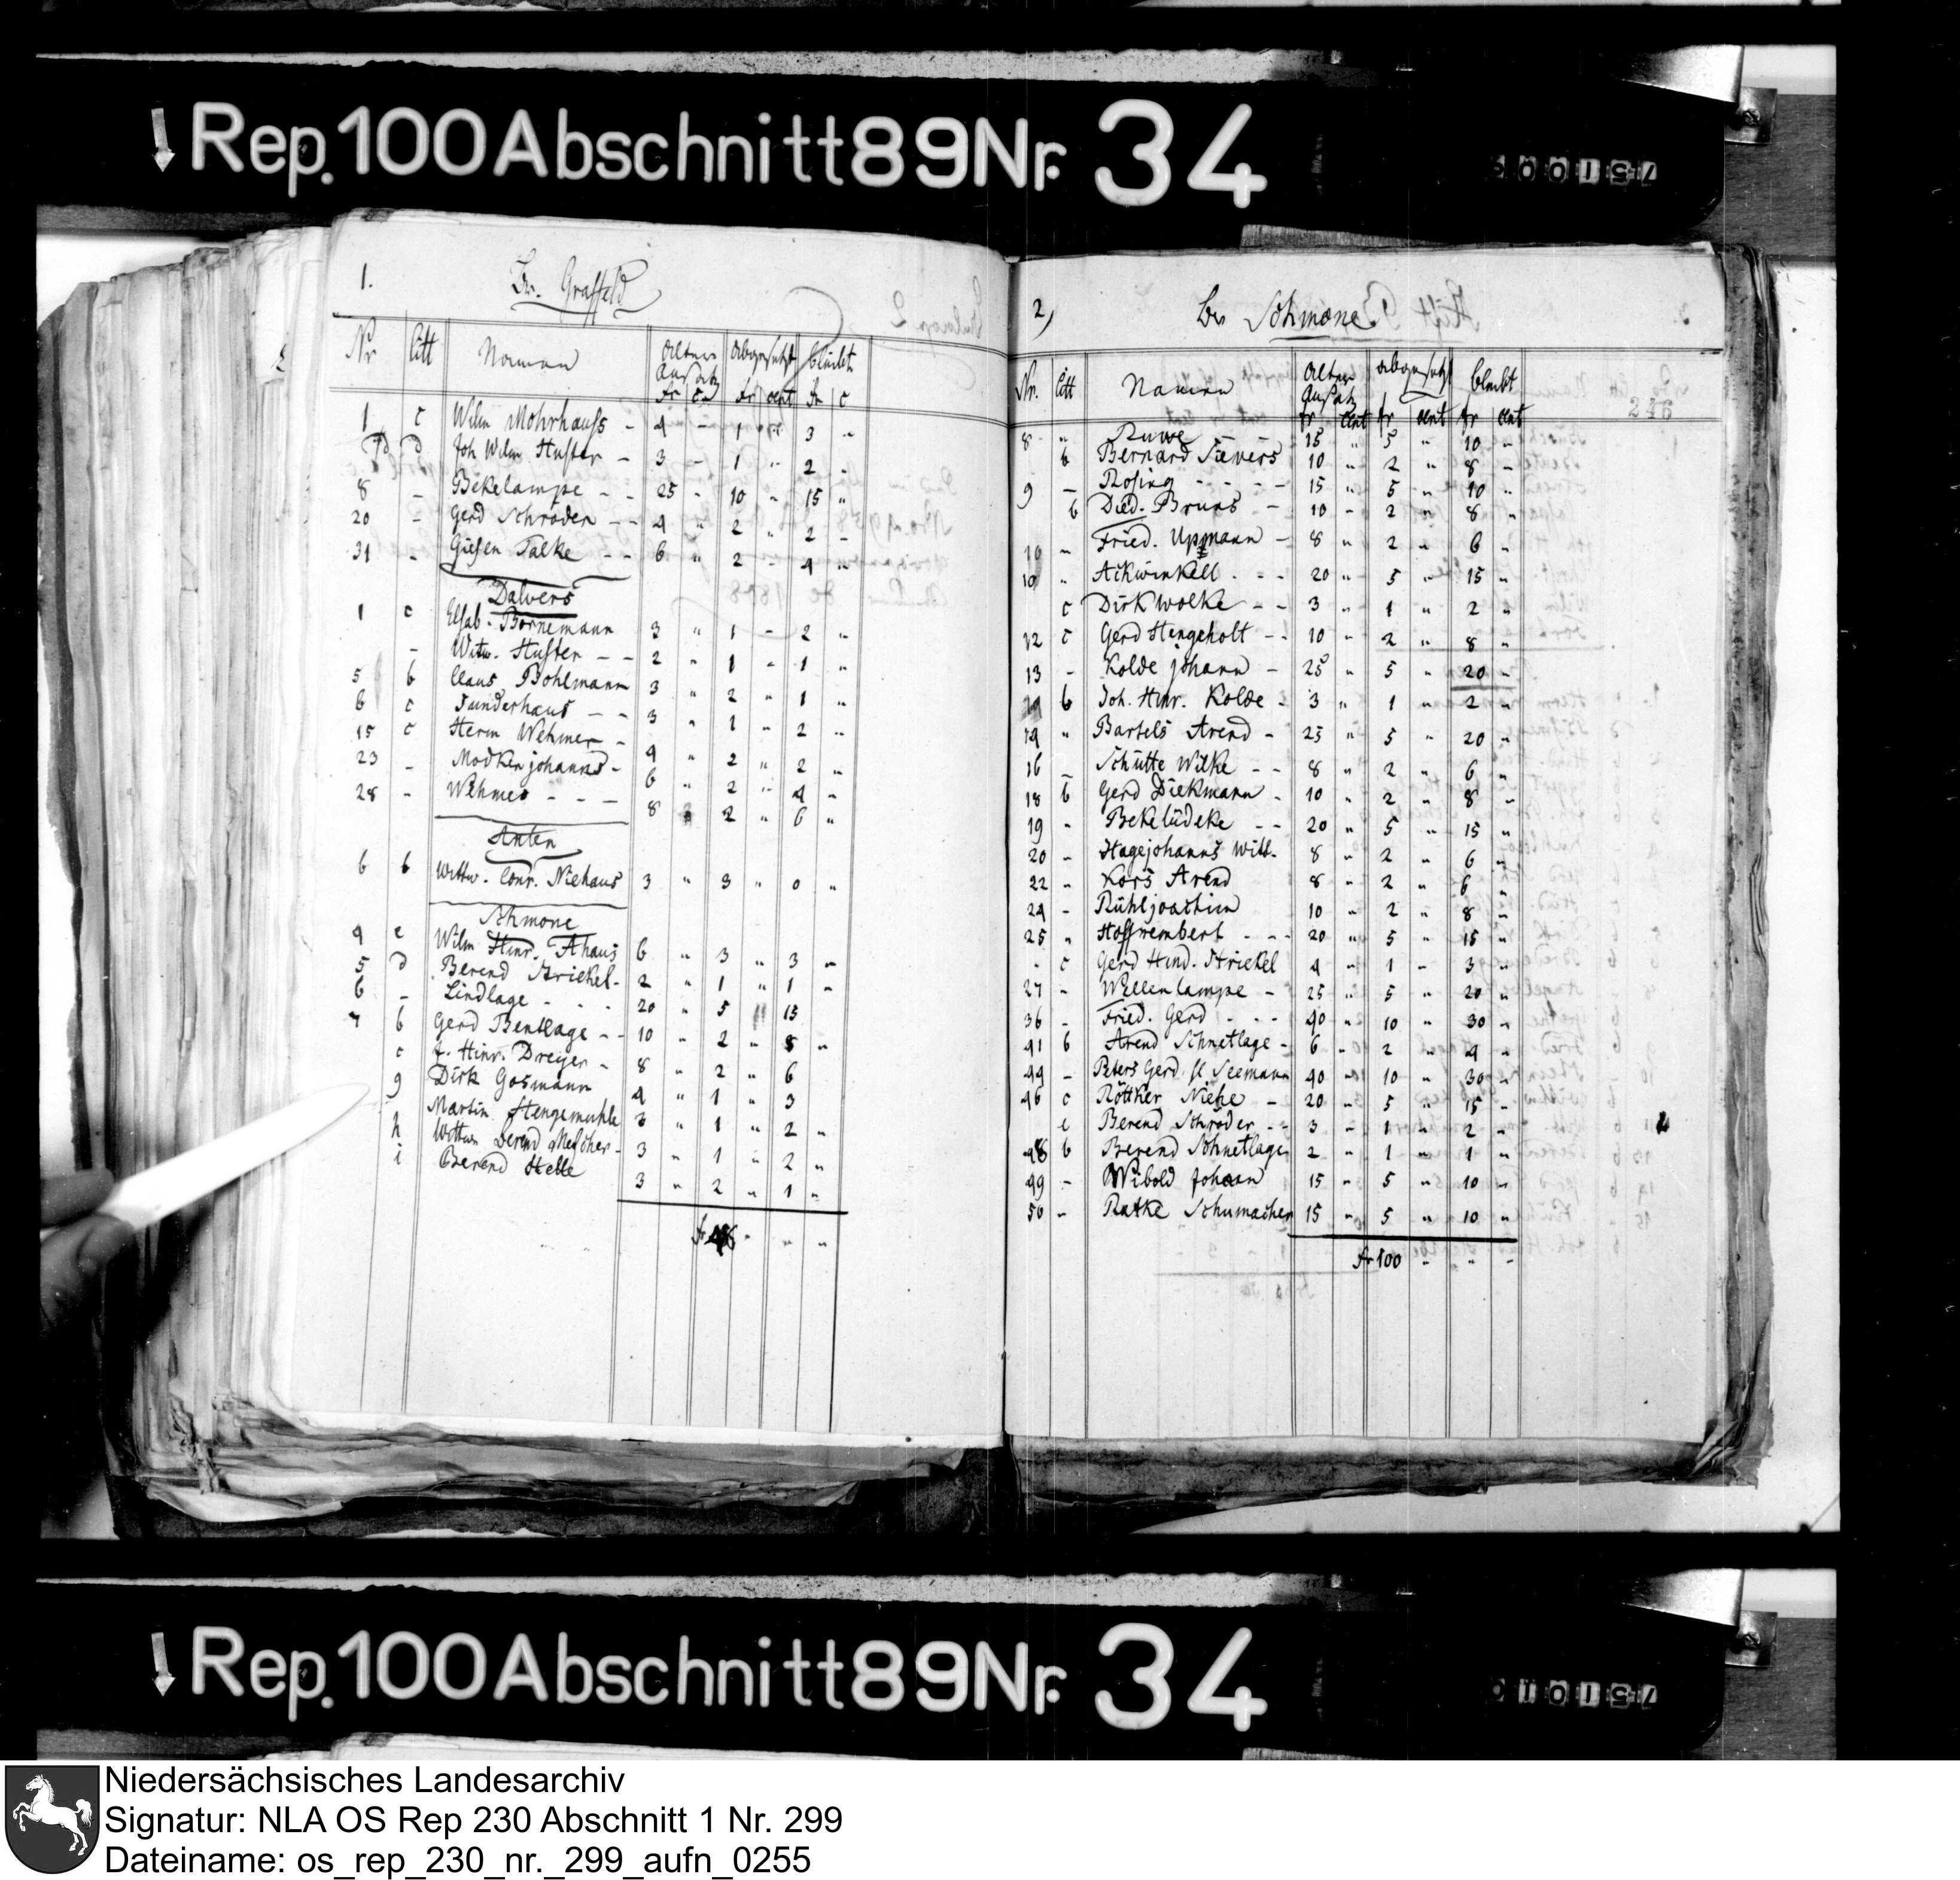 Rep. 100 Abschnitt 89 Nr. 34
1.
Br. Graffeld
Nr Litt Namen Alter Ansatz abgesetzt bleibt
Fr C Fr cent Fr C
1 c Wilm Mohrhauss - 4 - 1 " 3 "
7d d Joh Wilm Huster - 3 - 1 " 2 -
8 - Bekelampe - - 25 - 10 " 15 "
20 - Gerd Schröder - - 4 " 2 " 2 -
31 - Giesen Talke - - 6 " 2 - 4 "
Dalvers
1 c Elsab. Bornemann 3 " 1 - 2 "
- Witw. Huster - - 2 " 1 - 1 "
5 b Claus Pohlmann 3 " 2 " 1 "
6 c Sunderhaus - - 3 " 1 " 2 "
15 c Herm Wehmer - 4 " 2 " 2 "
23 - Modkenjohanns - 6 " 2 " 4 "
28 - Wehmer - - - 8 2 " 6 "
Anten
6 b Wittw. Conr. Niehaus 3 " 3 " 0 "
Schmone
4 c Wilm Hinr. Ahaus 6 " 3 " 3 "
5 d Berend Striekel - 2 " 1 " 1 "
6 - Lindlage - - - 20 " 5 " 15
7 b Gerd Bentlage - - 10 " 2 " 8 "
c J. Hinr. Dreyer - 8 " 2 " 6
g Dirk Gosmann 4 " 1 " 3
Martin Stengemuhle 3 " 1 " 2 "
h Wittwe Berend Mescher - 3 " 1 " 2 "
i Berend Stelle 3 " 2 " 1 "
2)
Br Schmone
Nr. Litt Namen Alter Ansatz abgesetzt bleibt
fr cent fr cent fr cent
246
8 - " Ruwe - - 15 " 5 " 10 "
b Bernard Sievers 10 " 2 " 8 "
9 - Rosing - - - - 15 " 5 " 10 "
b Died. Bruns - 10 - 2 " 8 "
10 " Fried. Upmann - 8 " 2 " 6 "
10 " Ackwinkell . - - 20 " 5 " 15 "
c Dirk Wolke - - 3 " 1 " 2 "
12 c Gerd Hengeholt - - 10 - 2 " 8 "
13 - Kolde johann - 25 " 5 " 20 -
b Joh. Hinr. Kolde - 3 " 1 " 2 "
14 " Bartels Arend - 25 " 5 " 20 "
16 - Schütte Wilke - - 8 " 2 " 6 "
18 b Gerd Diekmann - 10 " 2 " 8 "
19 - Bekelüdeke - - 20 " 5 " 15 "
20 - Hagejohanns Will. 8 " 2 " 6 "
22 - Kors Arend 8 " 2 " 6 "
24 - Rühljoachim 10 " 2 " 8 "
25 " Hoffrembert - - - 20 " 5 " 15 "
- c Gerd Hind. Striekel 4 " 1 " 3 "
27 - Wellenlampe - 25 " 5 " 20 "
36 - Fried. Gerd - - - 40 " 10 " 30 "
41 b Arend Schnetlage - 6 " 2 " 4 "
44 - Peters Gerd st Seemann 40 " 10 " 30 "
46 c Röttker Niehe - 20 " 5 " 15 "
e Berend Schröder - - 3 " 1 " 2 "
48 b Berend Schnetlage 2 " 1 " 1 "
49 - Wibold Johann 15 " 5 " 10 "
50 - Ratke Schumacher 15 " 5 " 10 "
fr 100 " " -
Rep. 100 Abschnitt 89 Nr. 34
Niedersächsisches Landesarchiv
Signatur: NLA OS Rep 230 Abschnitt 1 Nr. 299
Dateiname: os_rep_230_nr._299_aufn_0255